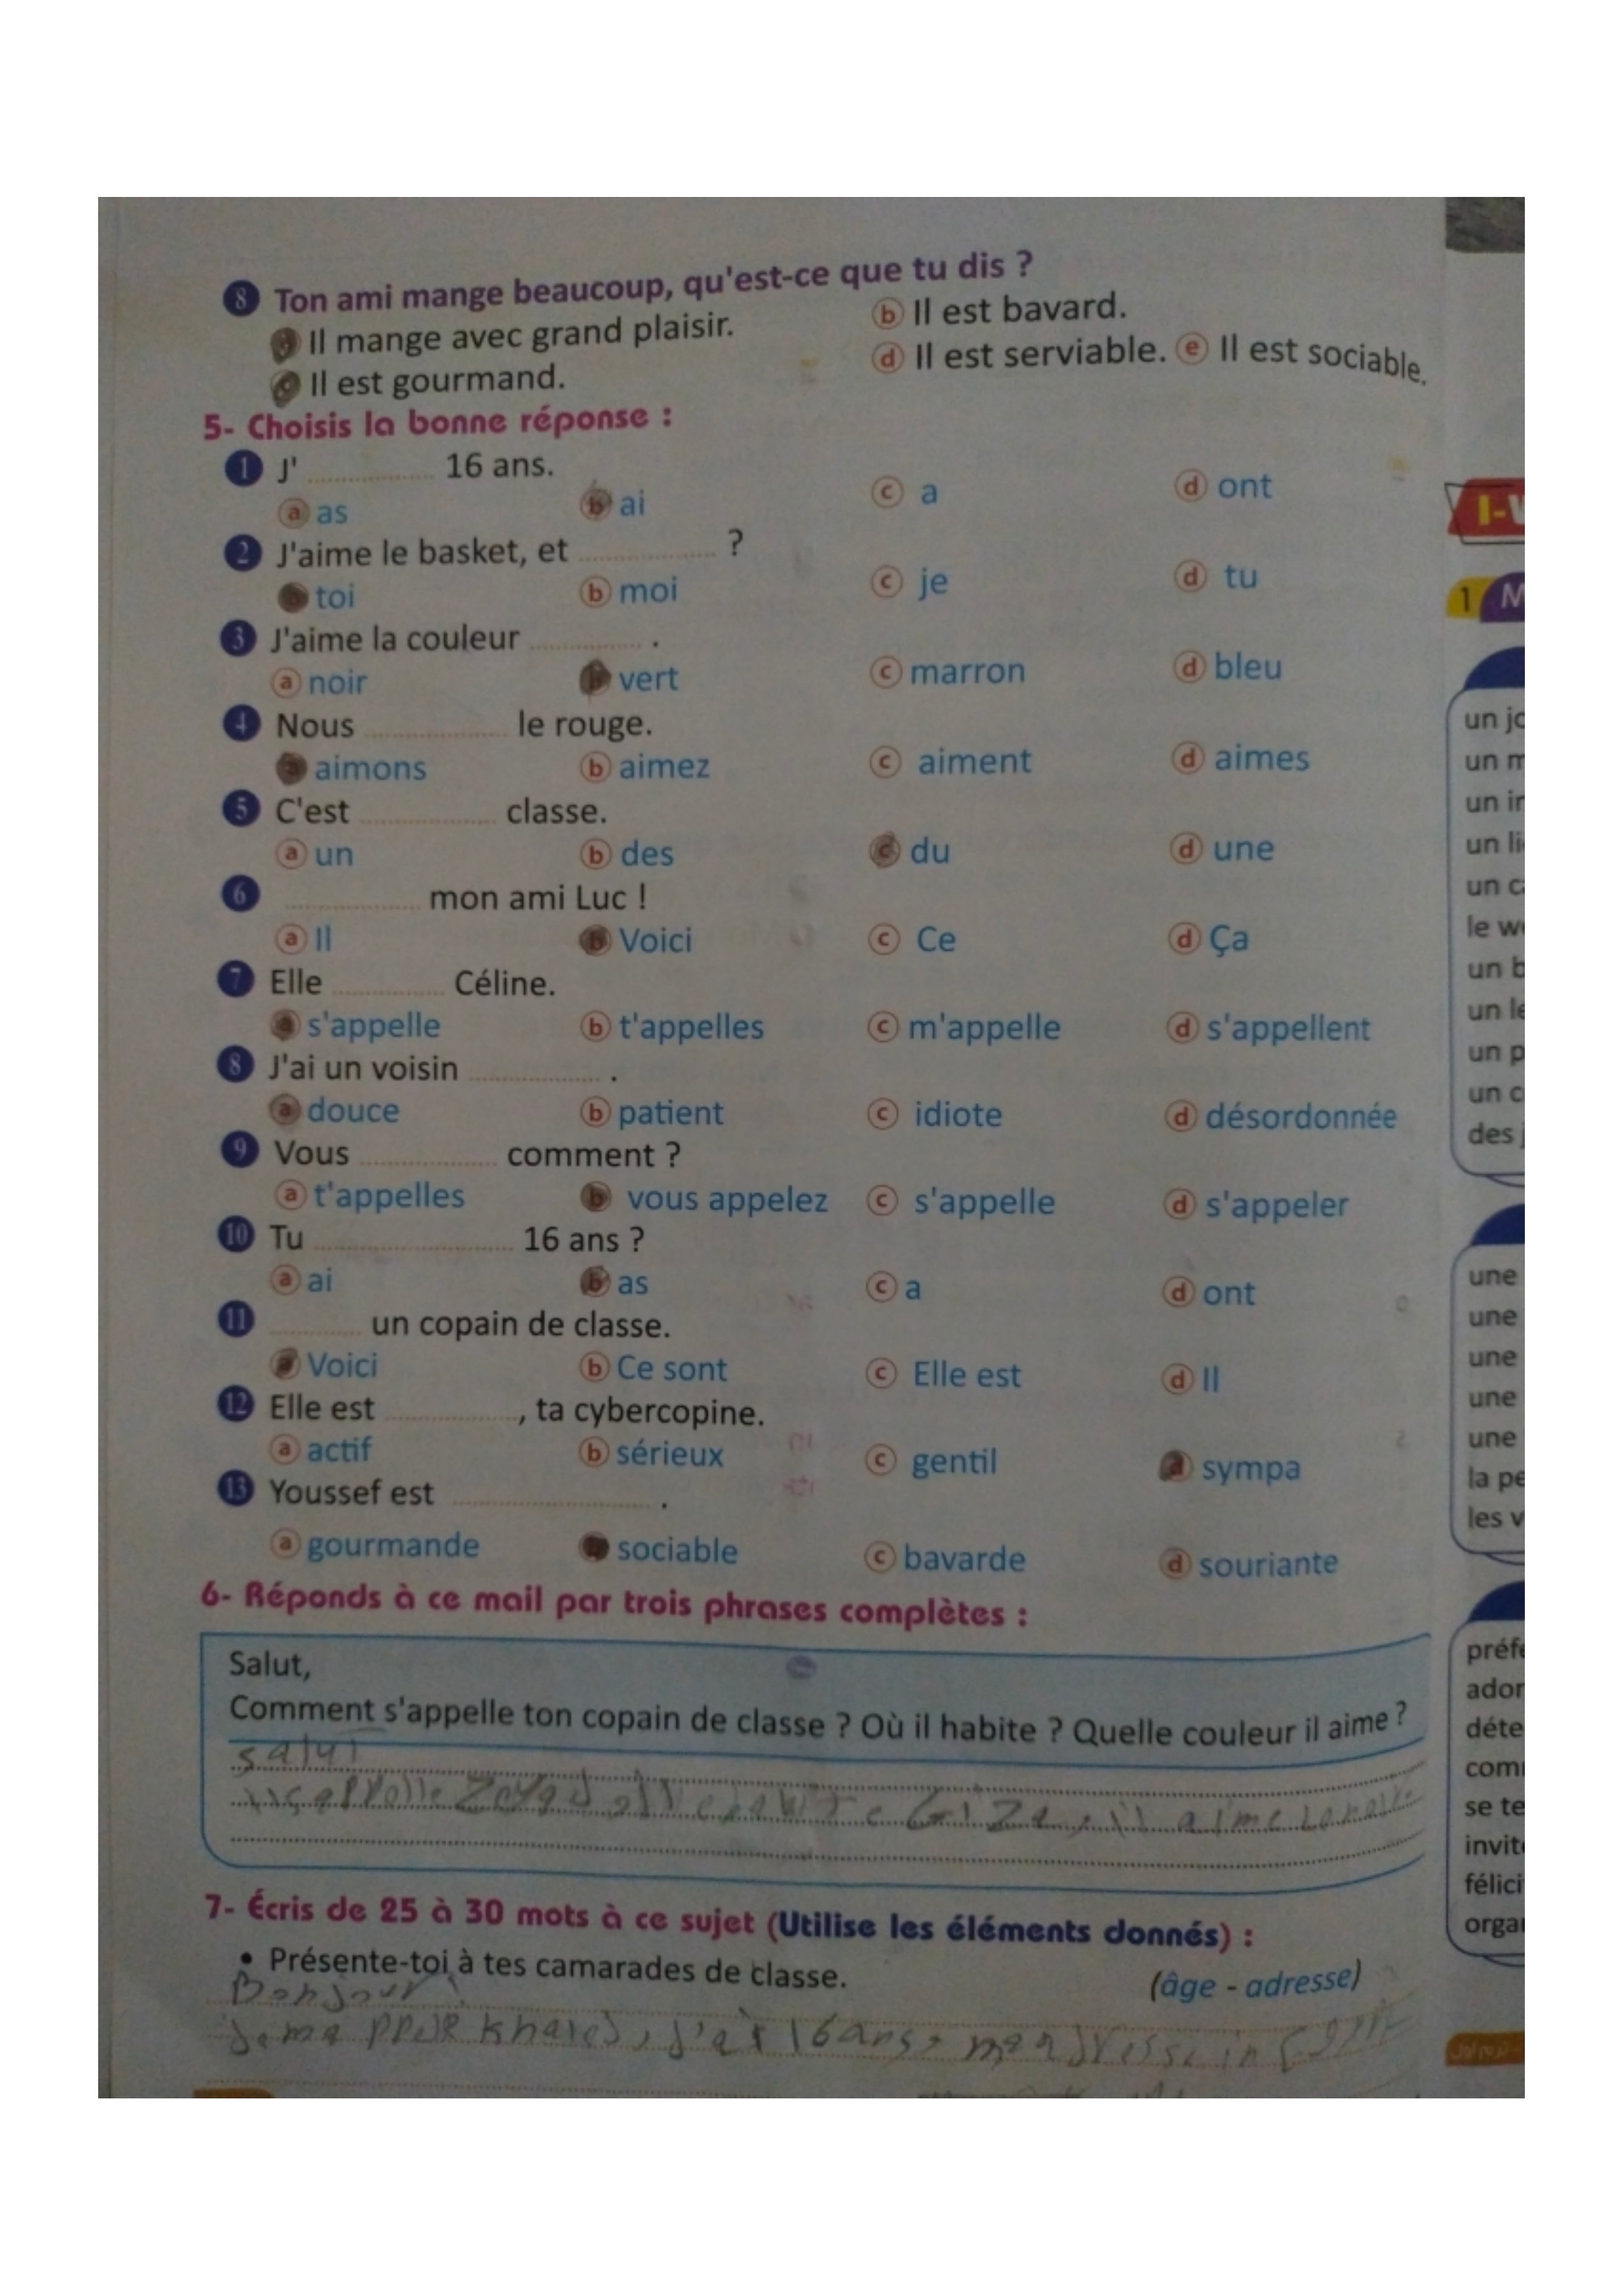 8 Ton ami mange beaucoup, qu'est-ce que tu dis ?
a Il mange avec grand plaisir. b Il est bavard.
c Il est gourmand. d Il est serviable. e Il est sociable.
5- Choisis la bonne réponse :
1 J' ............ 16 ans.
a as b ai c a d ont
2 J'aime le basket, et ............ ?
toi b moi c je d tu
3 J'aime la couleur ............ .
a noir vert c marron d bleu
4 Nous ............ le rouge.
a aimons b aimez c aiment d aimes
5 C'est ............ classe.
a un b des c du d une
6 ............ mon ami Luc !
a Il b Voici c Ce d Ça
7 Elle ............ Céline.
a s'appelle b t'appelles c m'appelle d s'appellent
8 J'ai un voisin ............ .
a douce b patient c idiote d désordonnée
9 Vous ............ comment ?
a t'appelles b vous appelez c s'appelle d s'appeler
10 Tu ............ 16 ans ?
a ai b as c a d ont
11 ............ un copain de classe.
a Voici b Ce sont c Elle est d Il
12 Elle est ............, ta cybercopine.
a actif b sérieux c gentil d sympa
13 Youssef est ............ .
a gourmande sociable c bavarde d souriante
6- Réponds à ce mail par trois phrases complètes :
Salut,
Comment s'appelle ton copain de classe ? Où il habite ? Quelle couleur il aime ?
salut
Giza, il aime
7- Écris de 25 à 30 mots à ce sujet (Utilise les éléments donnés) :
• Présente-toi à tes camarades de classe. (âge - adresse)
Bonjour
Khaled, j'ai 16 ans,
I-V
1 M
un jo
un m
un in
un li
un c
le w
un b
un le
un p
un c
des j
une
une
une
une
une
la pe
les v
préfé
ador
déte
com
se te
invit
félici
orga